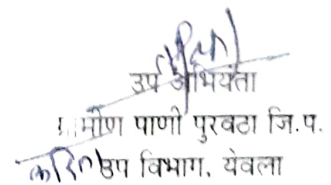 उप अभियंता
ग्रामीण पाणी पुरवठा जि.प.
करिता उप विभाग, येवला